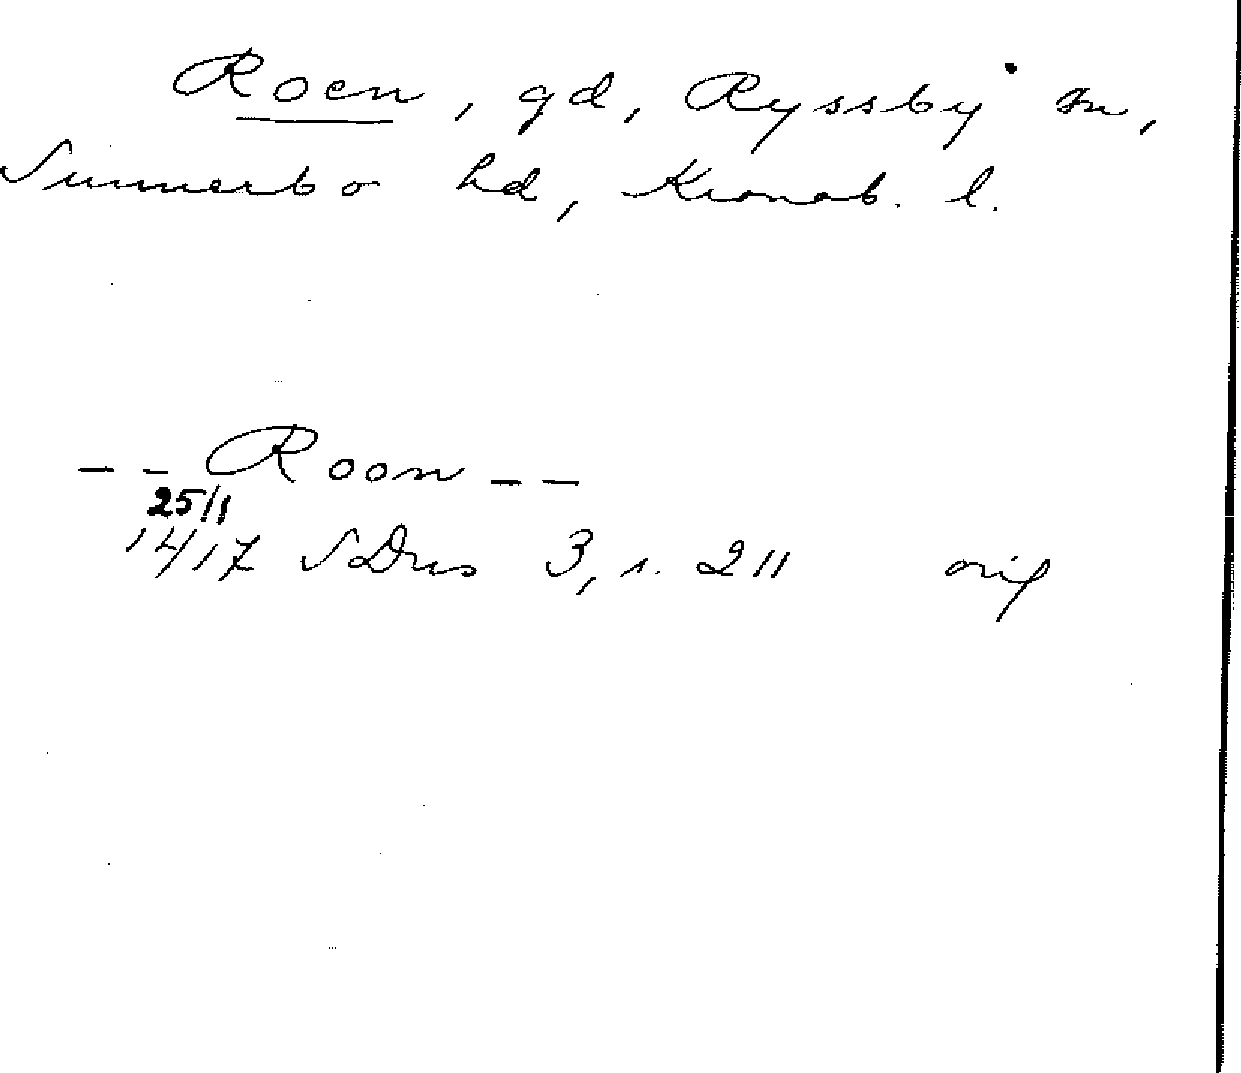 Roen, gd, Ryssby sn,
Sunnerbo hd, Kronob. l.
-- Roon --
25/11
1417 SDns 3, s. 211 orig